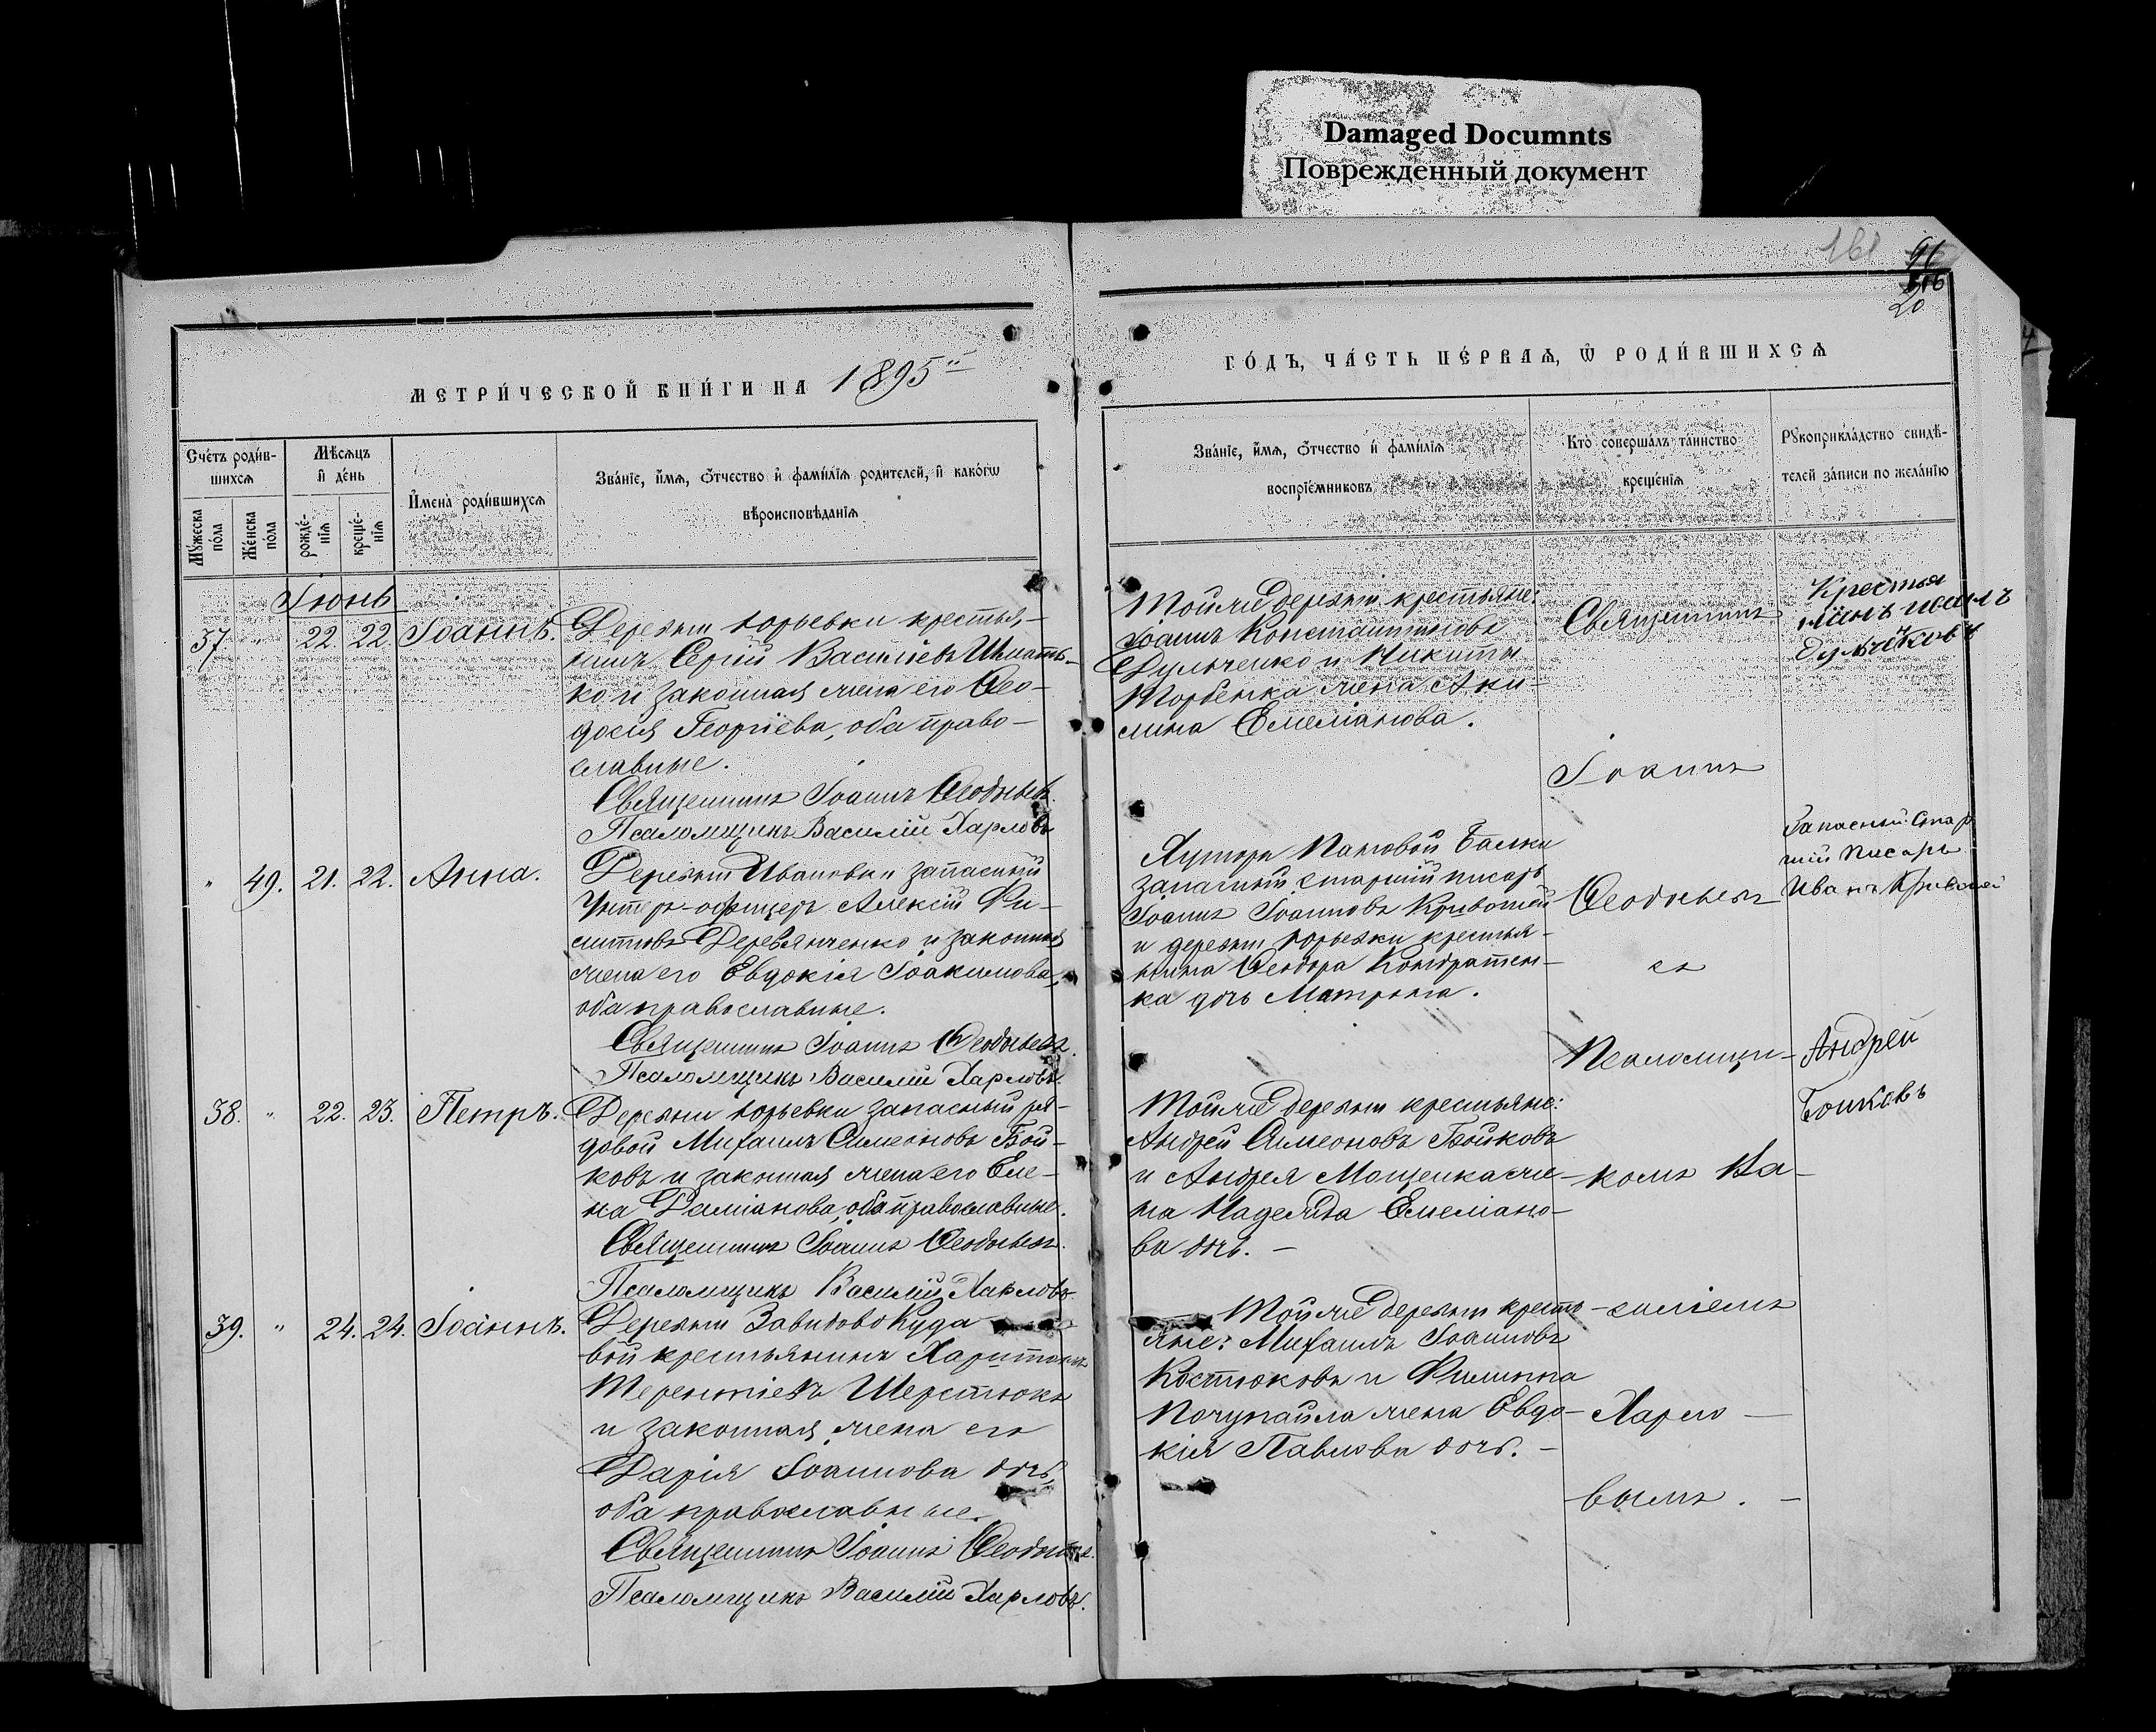 Damaged Documnts
Поврежденный документ
161
96
20
МЕТРИ́ЧЕСКОЙ КНИ́ГИ НА 1895й
ГО́ДЪ, ЧА́СТЬ ПЕ́РВАѦ, Ѽ РОДИ́ВШИХСѦ
Сче́тъ роди́в-
шихсѧ
Мꙋ́жеска по́ла
Же́нска по́ла
Мѣ́сѧцъ
и҆ де́нь
рожде́-
нїѧ
креще́-
нїѧ
И҆мена̀ роди́вшихсѧ
Зва́нїе, и҆́мѧ, ѻ҆́тчество и҆ фами́лїѧ родителей, и҆ како́гѡ
вѣроисповѣ́данїѧ
Зва́нїе, и҆́мѧ, ѻ҆́тчество и҆ фами́лїѧ
воспрїе́мниковъ
Кто̀ соверша́лъ та́инство
креще́нїѧ
Рꙋкоприкла́дство свидѣ́-
телей за́писи по жела́нїю
Іюнь
37. " 22. 22. Іоаннъ.
Деревни Юрьевки крестья-
нинъ Сергій Василіевъ
ко и законная жена его Ѳео-
досія Георгіева, оба право-
славные.
Священникъ Іоаннъ
Псаломщикъ Василій Харловъ
Тойже деревни крестьяне:
Іоаннъ Константиновъ
Дульченко и Никиты
Торбенка жена Аки-
лина Емеліанова.
Крестья
" 49. 21. 22. Анна.
Деревни Ивановки запасный
Унтеръ-офицеръ Алексій Фи-
липповъ Деревянченко и законная
жена его Евдокія Іоакимова,
оба православные.
Священникъ Іоаннъ
Псаломщикъ Василій Харловъ.
Хутора Пановой Балки
запасный старшій писарь
Іоаннъ Іоанновъ Кривошей
и деревни Юрьевки крестья-
нина Ѳеодора Кондратен-
ка дочь Матрона.
Запасный Стар
шій Писарь
Иванъ Кривошей
38. " 22. 23. Петръ.
Деревни Юрьевки запасный ря-
довой Михаилъ Симеоновъ Бой-
ковъ и законная жена его Еле-
на Даміанова, оба православные.
Священникъ Іоаннъ
Псаломщикъ Василій Харловъ.
Тойже деревни крестьяне:
Андрей Симеоновъ Бойковъ
и Андрея Мощенка же-
на Надежда Емеліано-
ва дочь. –
Андрей
Бойковъ
39. " 24. 24. Іоаннъ.
Деревни Завидово Куда
вой крестьянинъ Харитонъ
Терентіевъ Шерстюкъ
и законная жена его
Дарія Іоаннова дочь,
оба православные.
Священникъ Іоаннъ
Псаломщикъ Василій Харловъ.
Тойже деревни кресть-
яне: Михаилъ Іоанновъ
Костюковъ и Филиппа
Почупайла жена Евдо-
кія Павлова дочь. –
Священникъ
Іоаннъ
съ
Псаломщи-
комъ Ва-
силіемъ
Харло-
вымъ. –